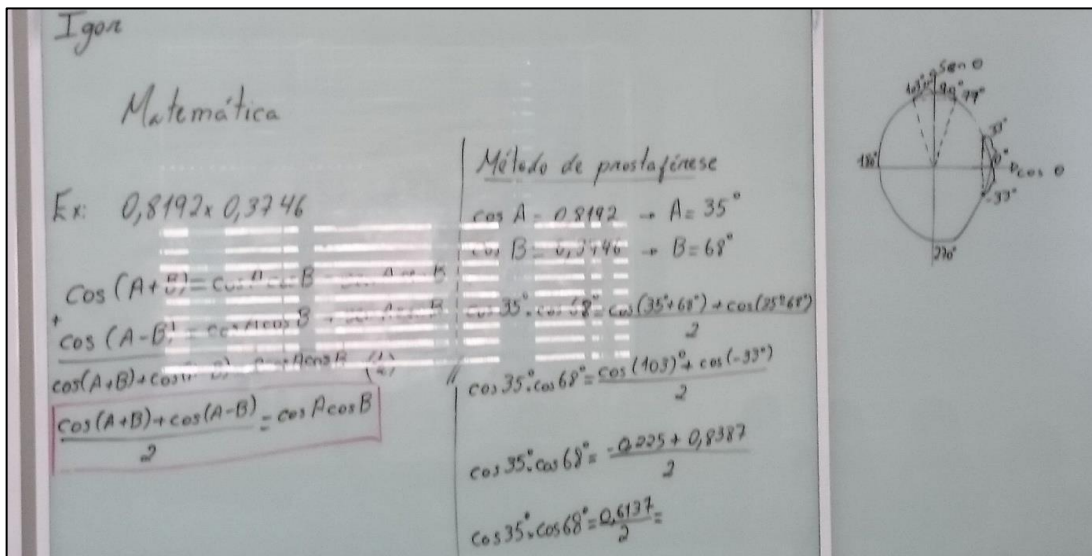 Igor
Matemática
Ex: 0,8192 x 0,3746
cos (A+B) = cos A cos B
+
cos (A-B) = cos A cos B
cos(A+B)+cos( cosB (1/2)
cos(A+B)+cos(A-B) = cos A cos B
2
Método de prostaférese
cos A = 0,8192 → A = 35°
cos B = 0,3746 → B = 68°
cos 35°. cos 68° = cos(35°+68°) + cos(35°-68°)
2
// cos 35°. cos 68° = cos (103)° + cos (-33°)
2
cos 35°. cos 68° = -0,225 + 0,8387
2
cos 35°. cos 68° = 0,6137 =
2
sen θ
103° 90° 77°
33°
180° 0° cos θ
-33°
270°